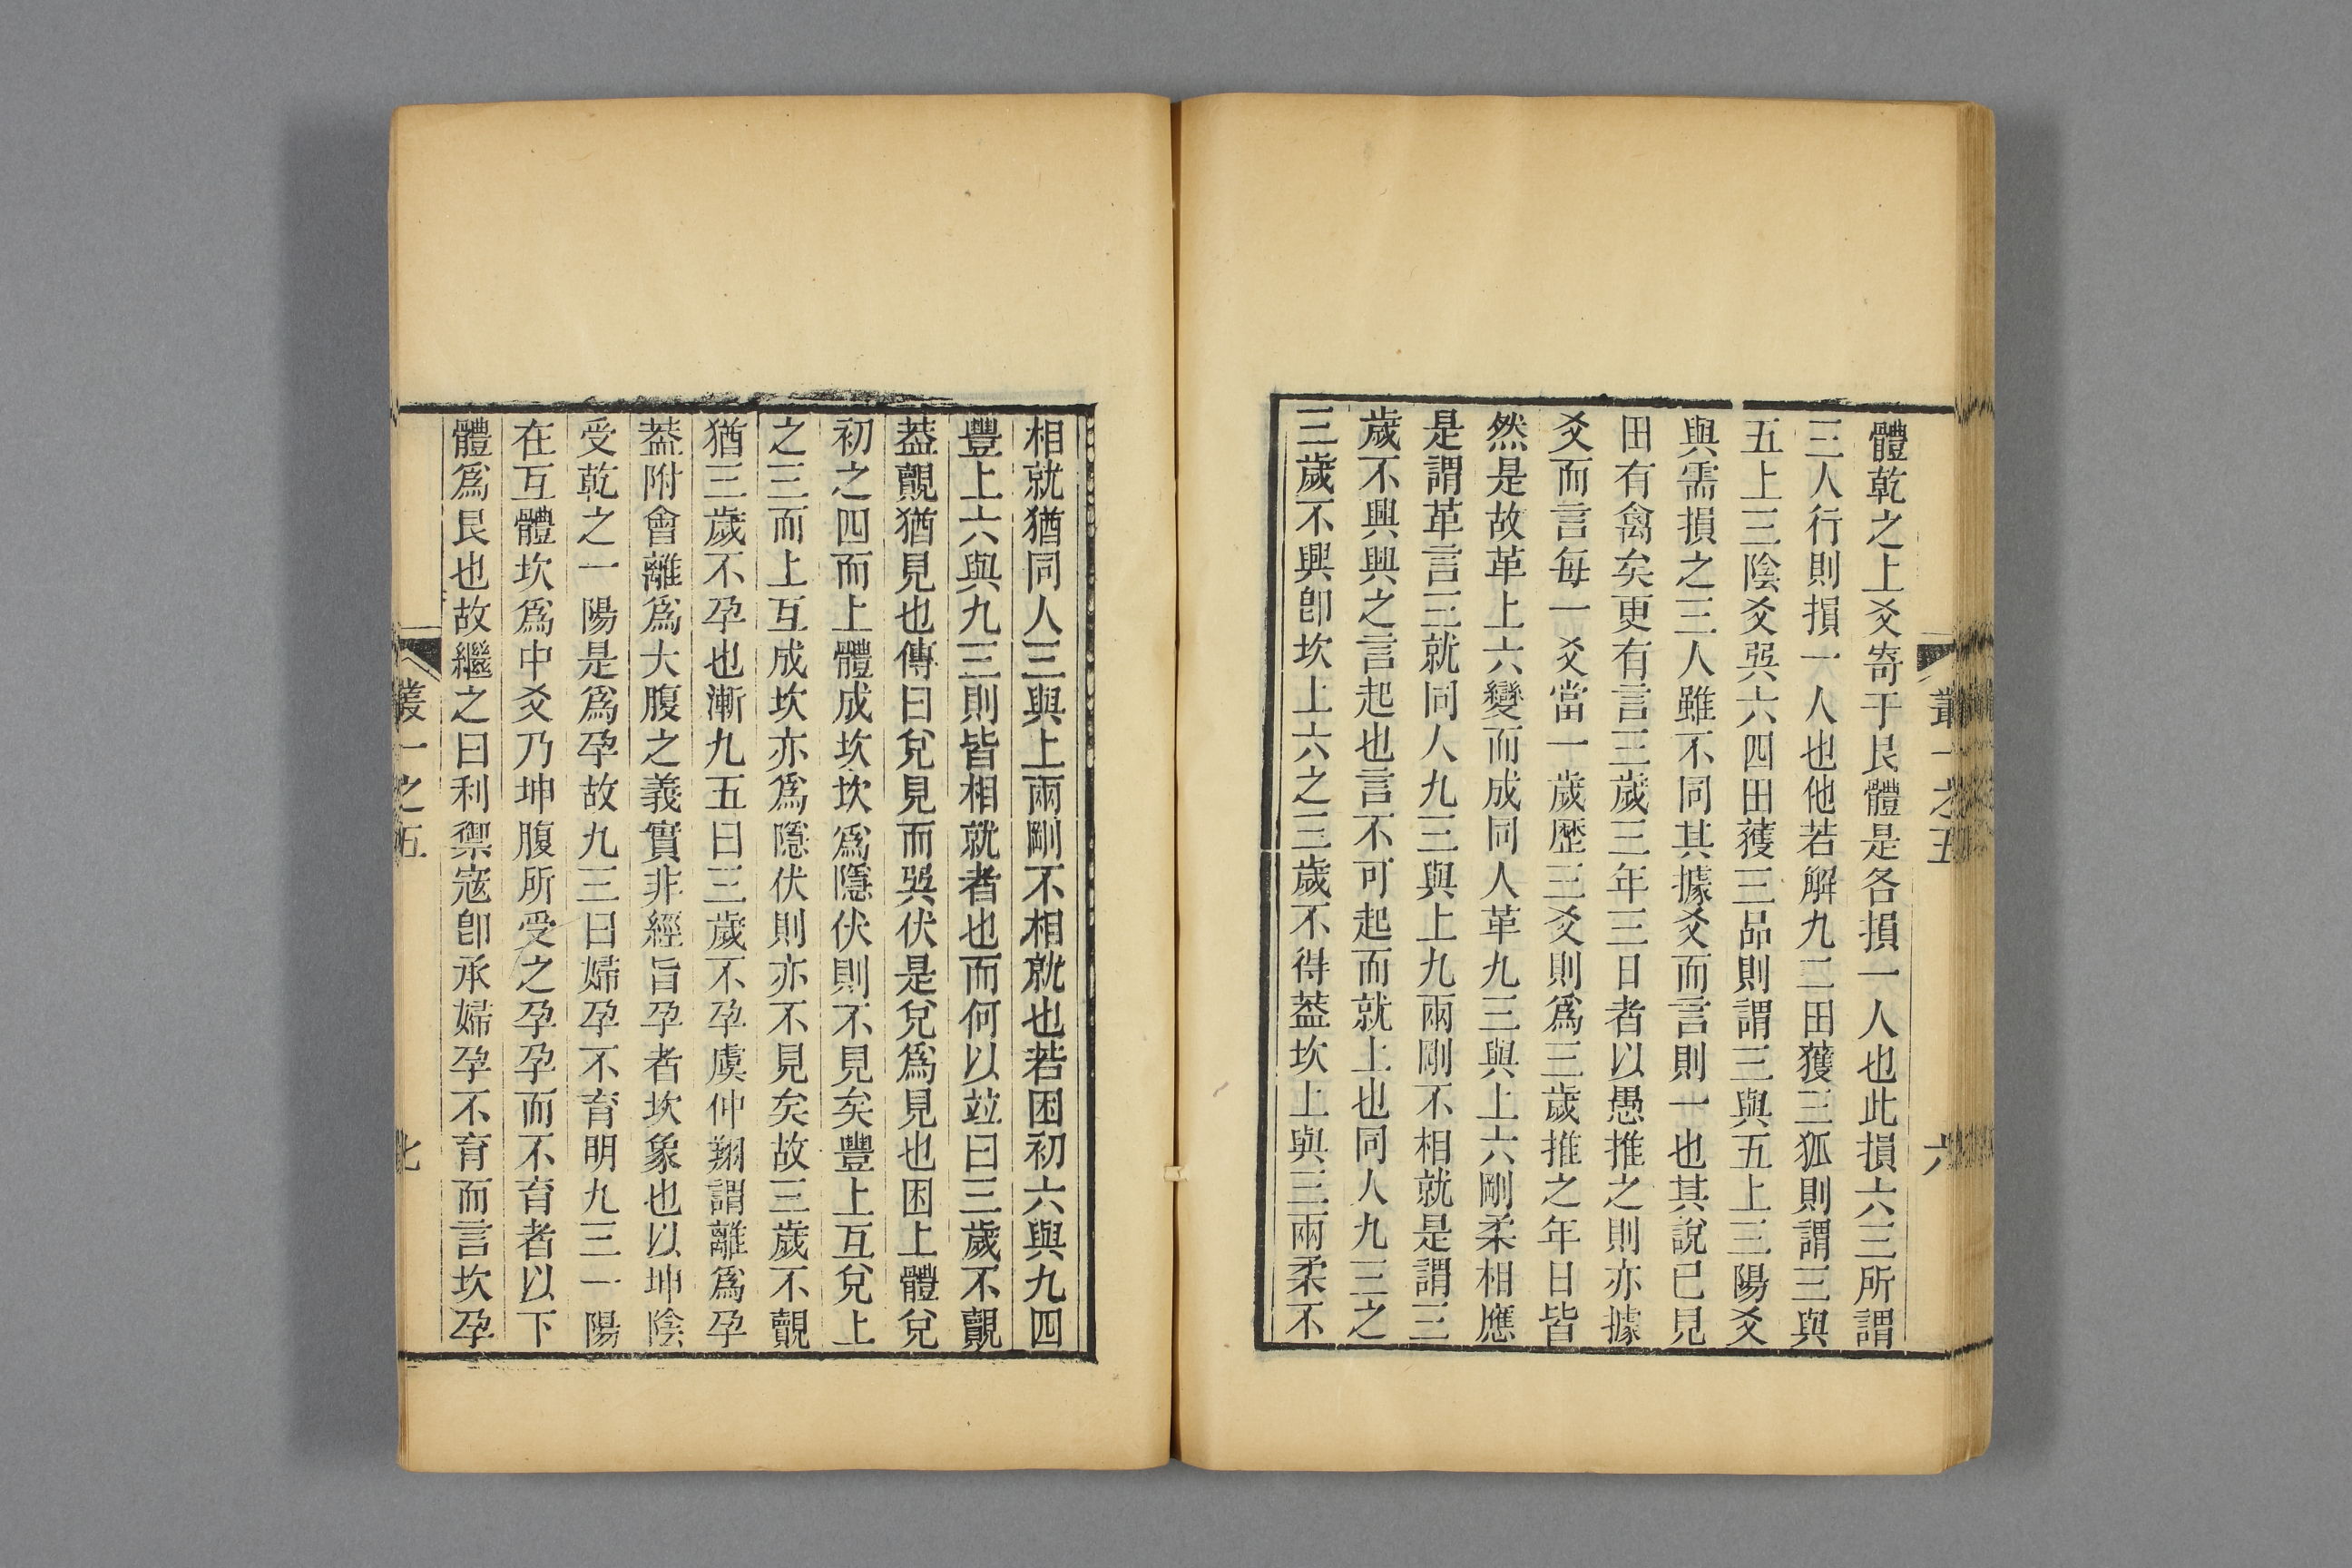 體乾之上爻寄于艮體是各損一人也此損六三所謂
三人行則損一人也他若解九二田獲三狐則謂三與
五上三陰爻巽六四田獲三品則謂三與五上三陽爻
與需損之三人雖不同其據爻而言則一也其說已見
田有禽矣更有言三歲三年三日者以愚推之則亦據
爻而言每一爻當一歲歷三爻則爲三歲推之年日皆
然是故革上六變而成同人革九三與上六剛柔相應
是謂革言三就同人九三與上九兩剛不相就是謂三
歲不興興之言起也言不可起而就上也同人九三之
三歲不興卽坎上六之三歲不得葢坎上與三兩柔不
叢一之五
六
相就猶同人三與上兩剛不相就也若困初六與九四
豐上六與九三則皆相就者也而何以竝曰三歲不覿
葢覿猶見也傳曰兌見而巽伏是兌爲見也困上體兌
初之四而上體成坎坎爲隱伏則不見矣豐上互兌上
之三而上互成坎亦爲隱伏則亦不見矣故三歲不覿
猶三歲不孕也漸九五曰三歲不孕虞仲翔謂離爲孕
葢附會離爲大腹之義實非經旨孕者坎象也以坤陰
受乾之一陽是爲孕故九三曰婦孕不育明九三一陽
在互體坎爲中爻乃坤腹所受之孕孕而不育者以下
體爲艮也故繼之曰利禦寇卽承婦孕不育而言坎孕
叢一之五